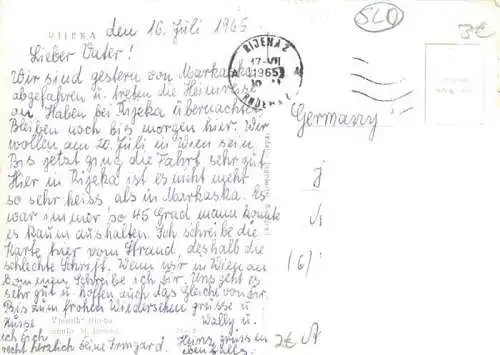 RIJEKA
den 16. Juli 1965
Lieber Vater!
Wir sind gestern von Markaska
abgefahren u. treten die Heimreise
an. Haben bei Rijeka übernachtet
Bleiben noch bis morgen hier. Wir
wollen am 20. Juli in Wien sein
Bis jetzt ging die Fahrt sehr gut
Hier in Rijeka ist es nicht mehr
so sehr heiss, als in Markaska. Es
war immer so 45 Grad mann könnte
es kaum aushalten. Ich schreibe die
Karte hier vom Strand, deshalb die
schlechte Schrift. Wenn wir in Wien an
kommen, schreibe ich dir. Uns geht es
sehr gut u. hoffen auch das Gleiche von dir.
Bis zum frohen Wiedersehen grüsse u
Küsse
Wally u.
ich Dich
recht herzlich Deine Irmgard.
Heinz grüsst
ebenfalls
RIJEKA 2
17-VII
1965
Germany
520
3€
2€
(6)